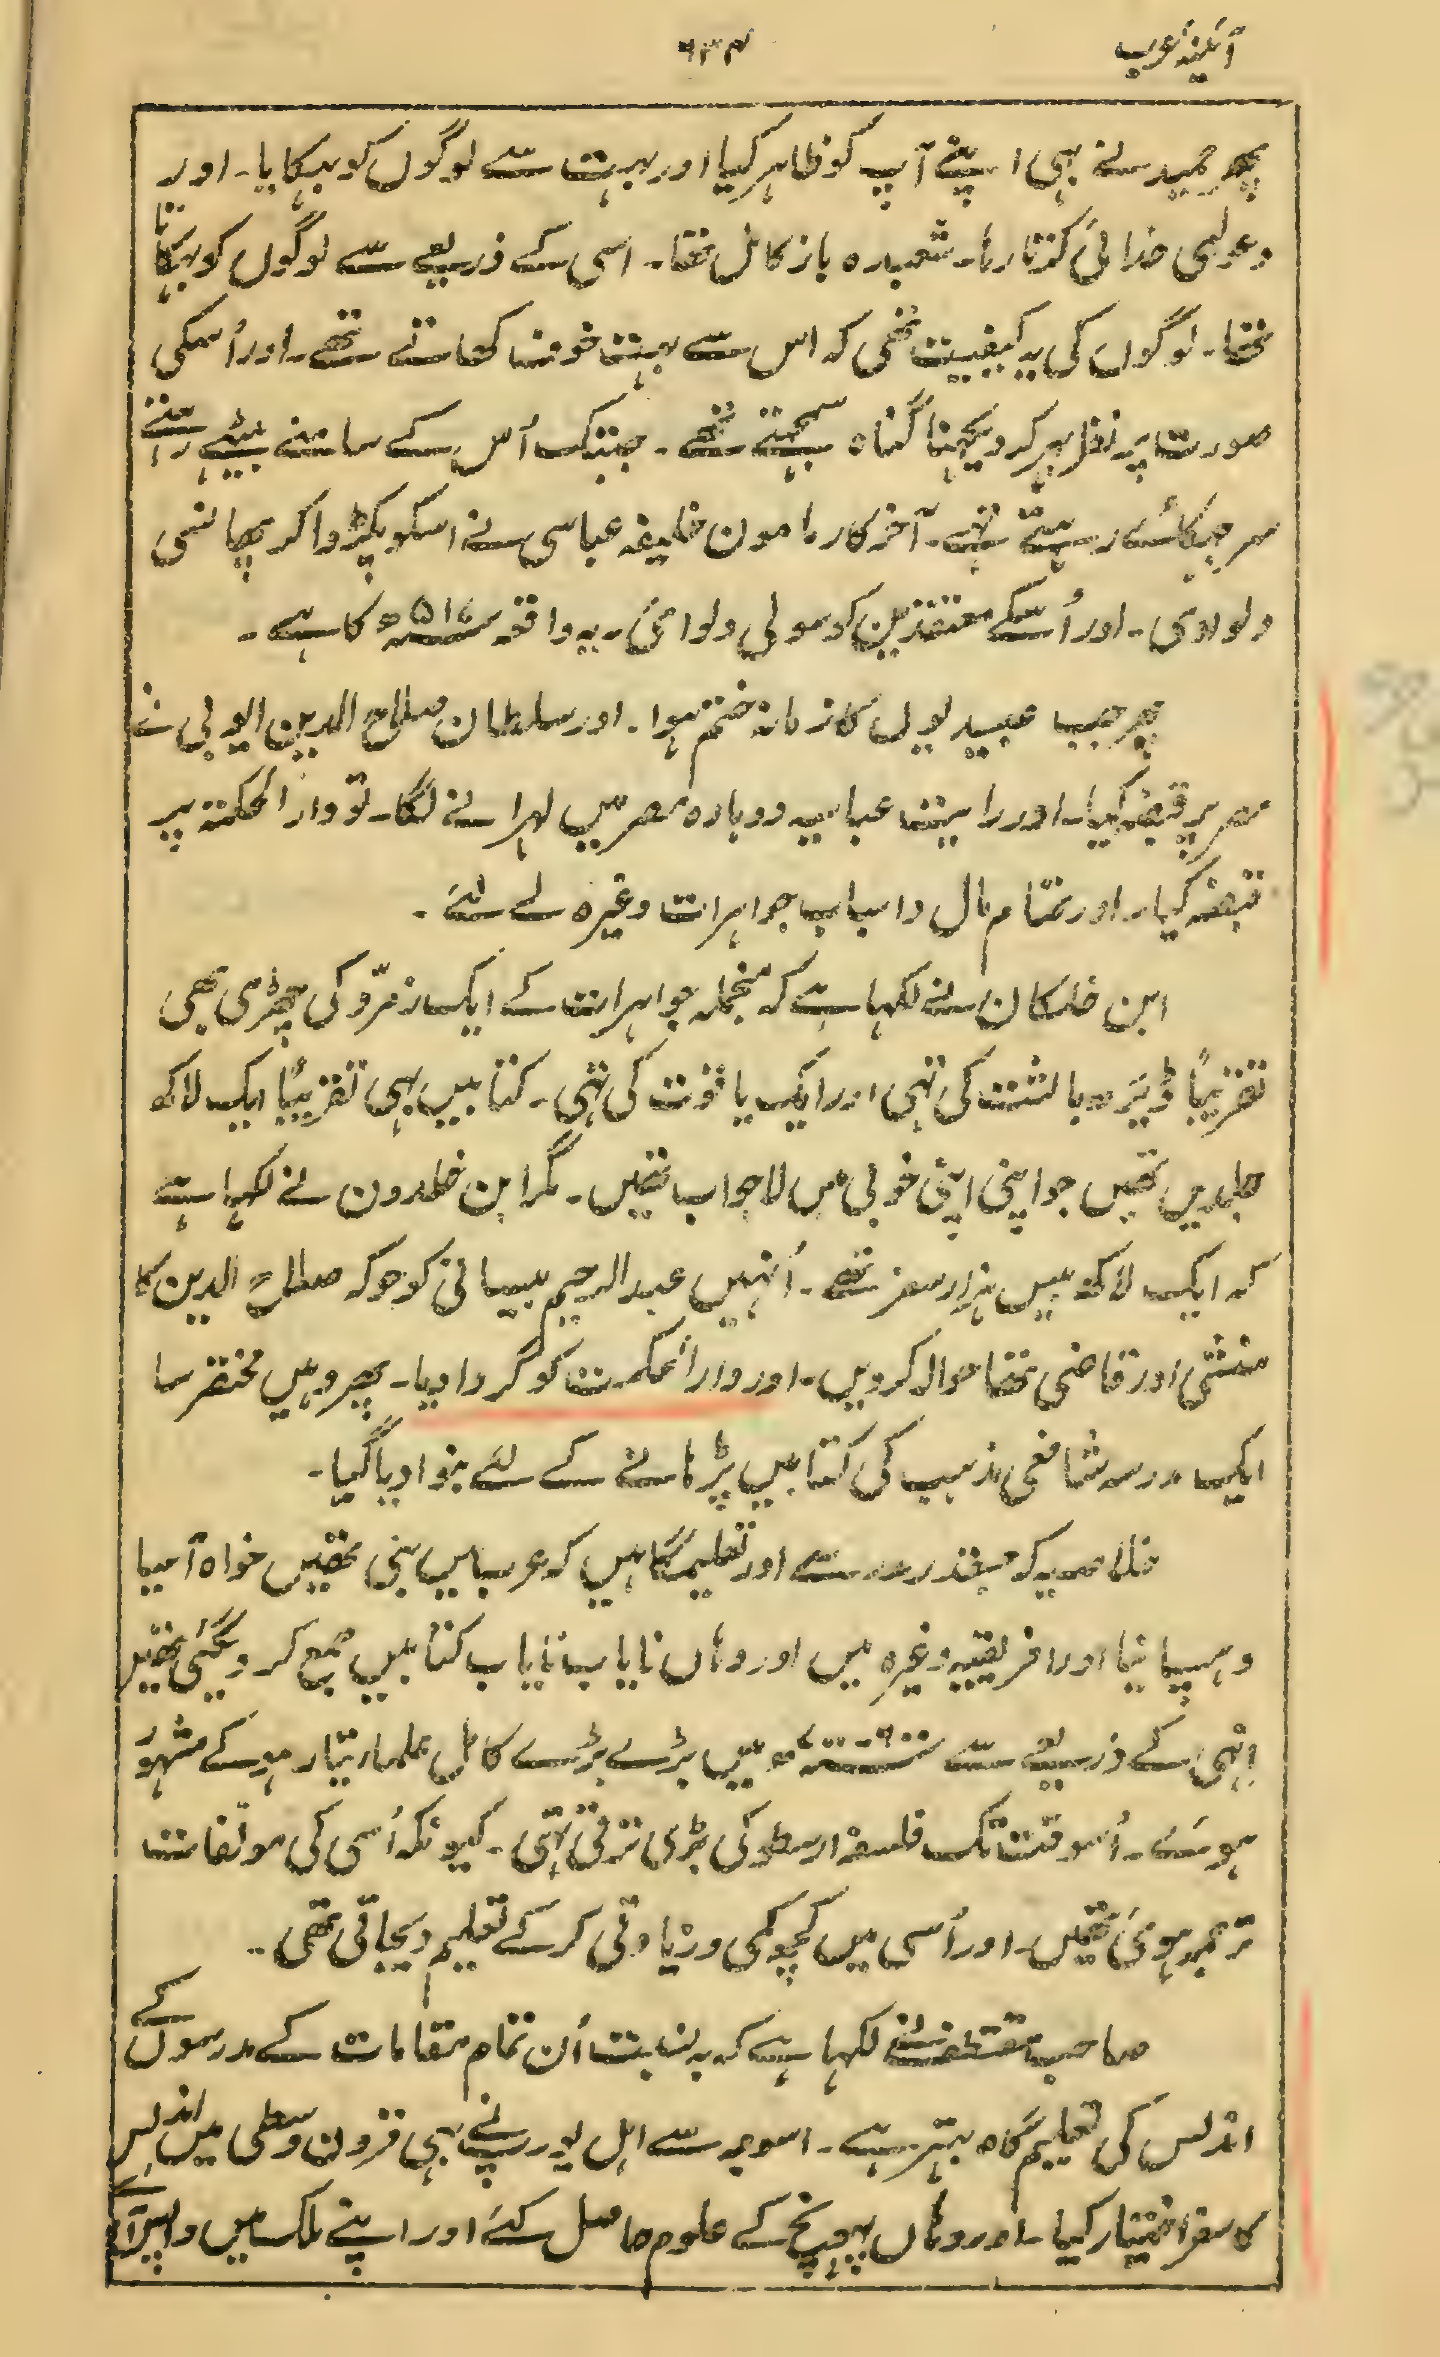 آئینۂ عرب
۶۳۴
پھر حمید نے بہی اپنے آپ کو ظاہر کیا اور بہت سے لوگوں کو بہکایا۔ اور
دعویٰ خدائی کرتا رہا۔ شعبدہ باز کامل تھا۔ اسی کے ذریعے سے لوگوں کو بہکاتا
تھا۔ لوگوں کی یہ کیفیت تھی کہ اس سے بہت خوف کھاتے تھے۔ اور اُسکی
صورت پر نظر بہر کر دیکہنا گناہ سمجہتے تھے۔ جبتک اُس کے سامنے بیٹھے رہتے
سر جہکائے رہتے تہے۔ آخرکار مامون خلیفہ عباسی نے اسکو پکڑوا کر پھانسی
دلوادی۔ اور اُسکے معتقدین کو سولی دلوائی۔ یہ واقعہ سنہ ۵۱۷ھ کا ہے۔
پھر جب عبیدیوں کا زمانہ ختم ہوا۔ اور سلطان صلاح الدین ایوبی نے
مصر پر قبضہ کیا۔ اور رایت عباسیہ دوبارہ مصر میں لہرانے لگا۔ تو دارالحکمتہ پر
قبضہ کیا۔ اور تمام مال و اسباب جواہرات وغیرہ لے لئے۔
ابن خلکان نے لکہا ہے کہ منجملہ جواہرات کے ایک زمرّد کی چھڑی بھی
تقریباً ڈیڑہ بالشت کی تہی اور ایک یاقوت کی تہی۔ کتابیں بہی تقریباً ایک لاکھ
جلدیں تھیں جو اپنی اپنی خوبی میں لاجواب تھیں۔ مگر ابن خلدون نے لکہا ہے
کہ ایک لاکھ بیس ہزار سفر تھے۔ اُنہیں عبدالرحیم بیسانی کو جو کہ صلاح الدین کا
منشی اور قاضی تھا حوالہ کردیں۔ اور دارالحکمت کو گروا دیا۔ پھر وہیں مختصر سا
ایک مدرسہ شافعی مذہب کی کتابیں پڑہانے کے لئے بنوا دیا گیا۔
خلاصہ یہ کہ جسقدر مدرسے اور تعلیم گاہیں کہ عرب میں بنی تھیں خواہ آسیا
و ہسپانیا اور افریقیہ وغیرہ میں اور وہاں نایاب نایاب کتابیں جمع کر دیگئی تھیں
انہی کے ذریعے سے میں بڑے بڑے کامل علماء تیار ہو کے مشہور
ہوئے۔ اُسوقت تک فلسفۂ ارسطو کی بڑی ترقی تہی۔ کیونکہ اُسی کی مولفات
ترجمہ ہوئی تھیں۔ اور اُسی میں کچھ کمی و زیادتی کر کے تعلیم دیجاتی تھی۔
صاحب مقتطف نے لکہا ہے کہ بہ نسبت اُن تمام مقامات کے مدرسوں کے
اندلس کی تعلیم گاہ بہتر ہے۔ اسوجہ سے اہل یورپ نے بہی قرون وسطی میں اندلس
کا سفر اختیار کیا۔ اور وہاں پہونچ کے علوم حاصل کئے اور اپنے ملک میں واپس آ